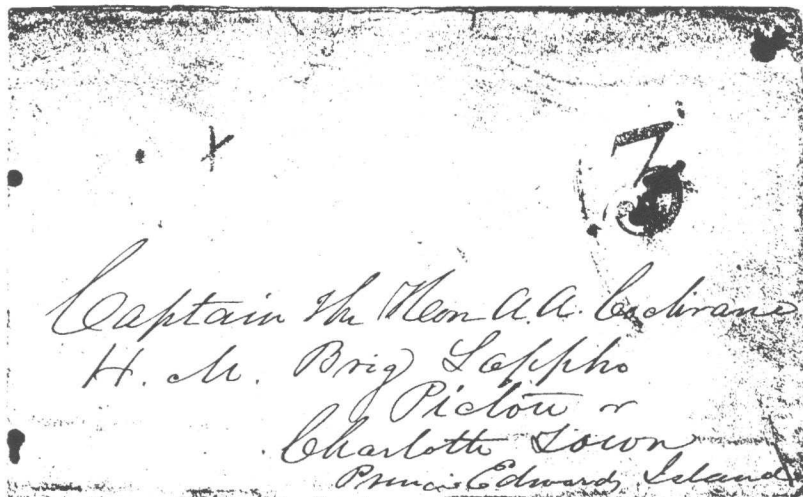 3
Captain The Hon A. A. Cochrane
H. M. Brig Sappho
Pictou or
Charlotte Town
Prince Edward Island